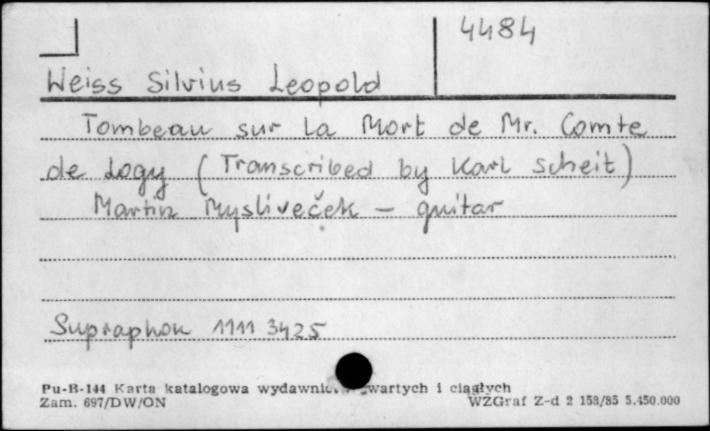 4484
Weiss Silvius Leopold
Tombeau sur La Mort de Mr. Comte
de Logy (Transcribed by Karl Scheit)
Martin Mysliveček – guitar
Supraphon 1111 3425
Pu-B-144 Karta katalogowa wydawnic wartych i ciągłych
Zam. 697/DW/ON WZGraf Z-d 2 158/85 5.450.000